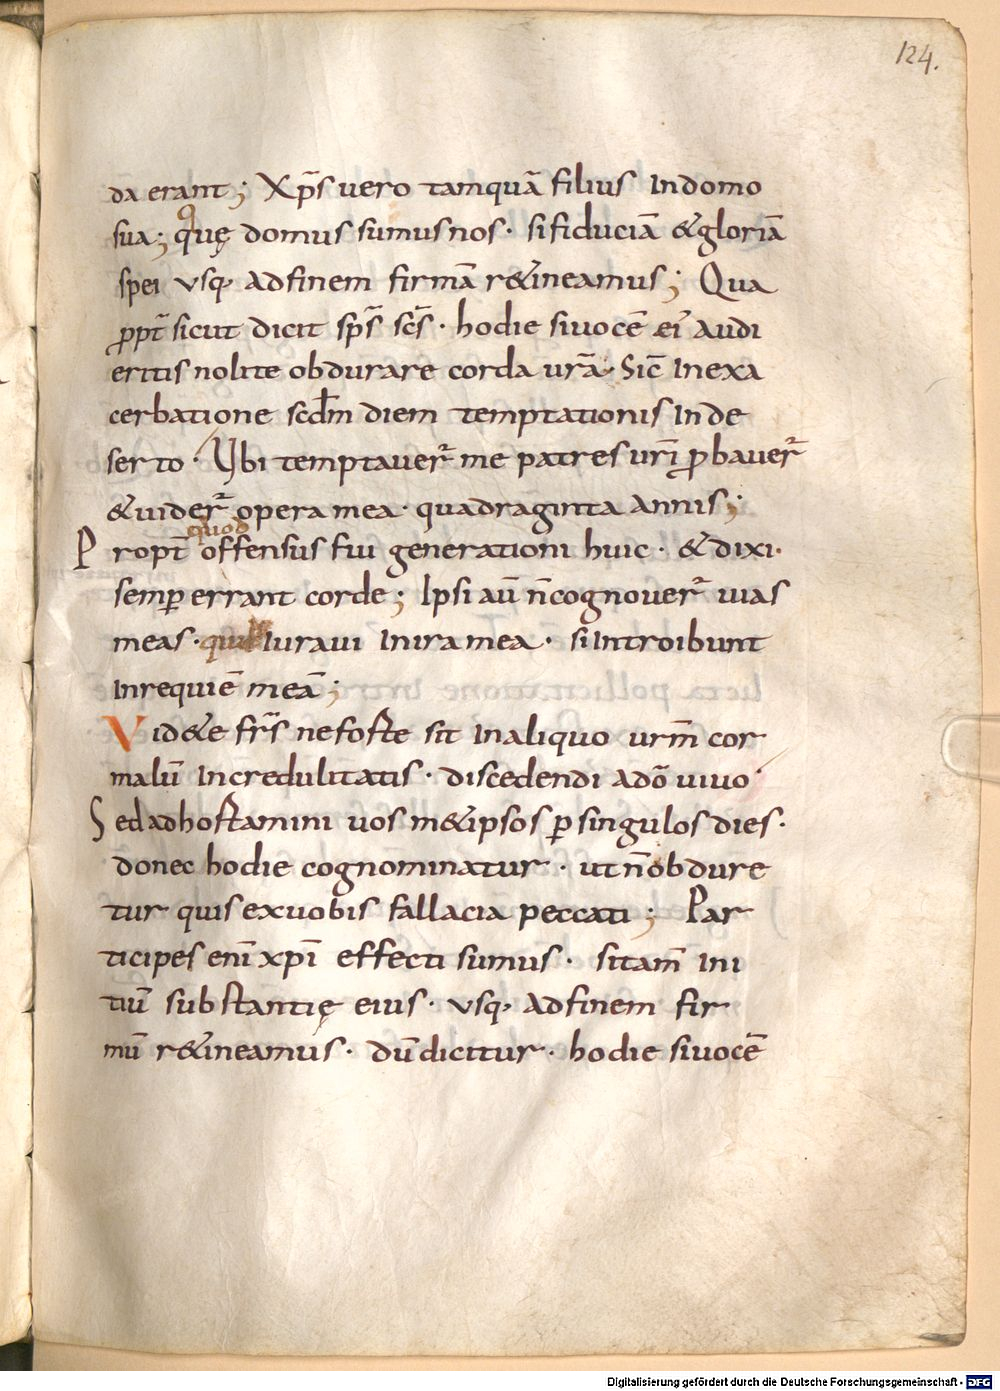 124.
da erant; Xp̄s vero tamquā filius Indomo
sua; quę domus sumus nos · si fiduciā & gloriā
spei vsq· adfinem firmā r&ineamus; Qua
ꝓpt̄ sicut dicit sp̄s sc̄s · hodie si uocē ei' audi
eritis nolite obdurare corda ur̄a · Sic̄ Inexa
cerbatione scdm̄ diem temptationis Inde
serto · Vbi temptauer̄ me patres ur̄i ꝓbauer̄
& uider̄ opera mea · quadraginta annis;
quod
Propt̄ offensus fui generationi huic · & dixi ·
semꝑ errant corde; Ipsi aū n̄cognouer̄ uias
meas · Iuraui Inira mea · si Introibunt
Inrequiē meā;
Vid&e fr̄s ne forte sit Inaliquo urm̄ cor
malū Incredulitatis · discedendi adō uiuo ·
Sed adhortamini uos m&ipsos ꝑ singulos dies ·
donec hodie cognominatur · ut n̄ obdure
tur quis exuobis fallacia peccati; Par
ticipes enī xp̄i effecti sumus · sitam̄ Ini
tiū substantię eius · vsq· adfinem fir
mū r&ineamus · dū dicitur · hodie si uocē
Digitalisierung gefördert durch die Deutsche Forschungsgemeinschaft - DFG